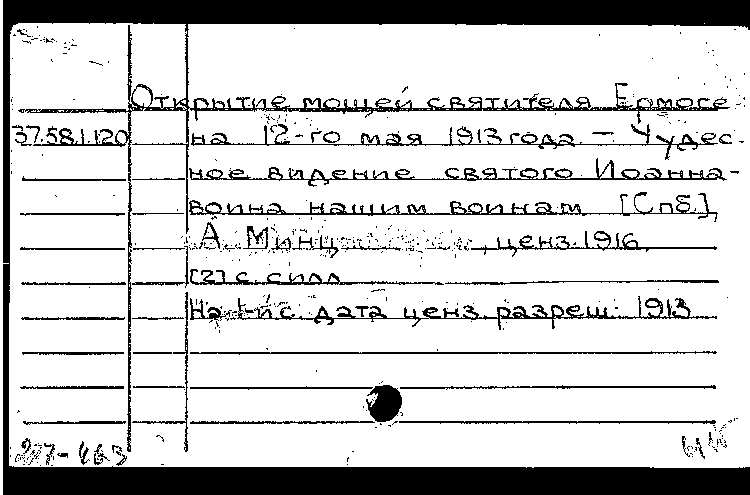 Открытие мощей святителя Ермоге
37.58.1.120 на 12-го мая 1913 года. - Чудес-
ное видение святого Иоанна-
воина нашим воинам. [Спб.],
А. Минц, ценз. 1916.
[2] с. с илл.
На 1-й с. дата ценз. разреш.: 1913
277-463